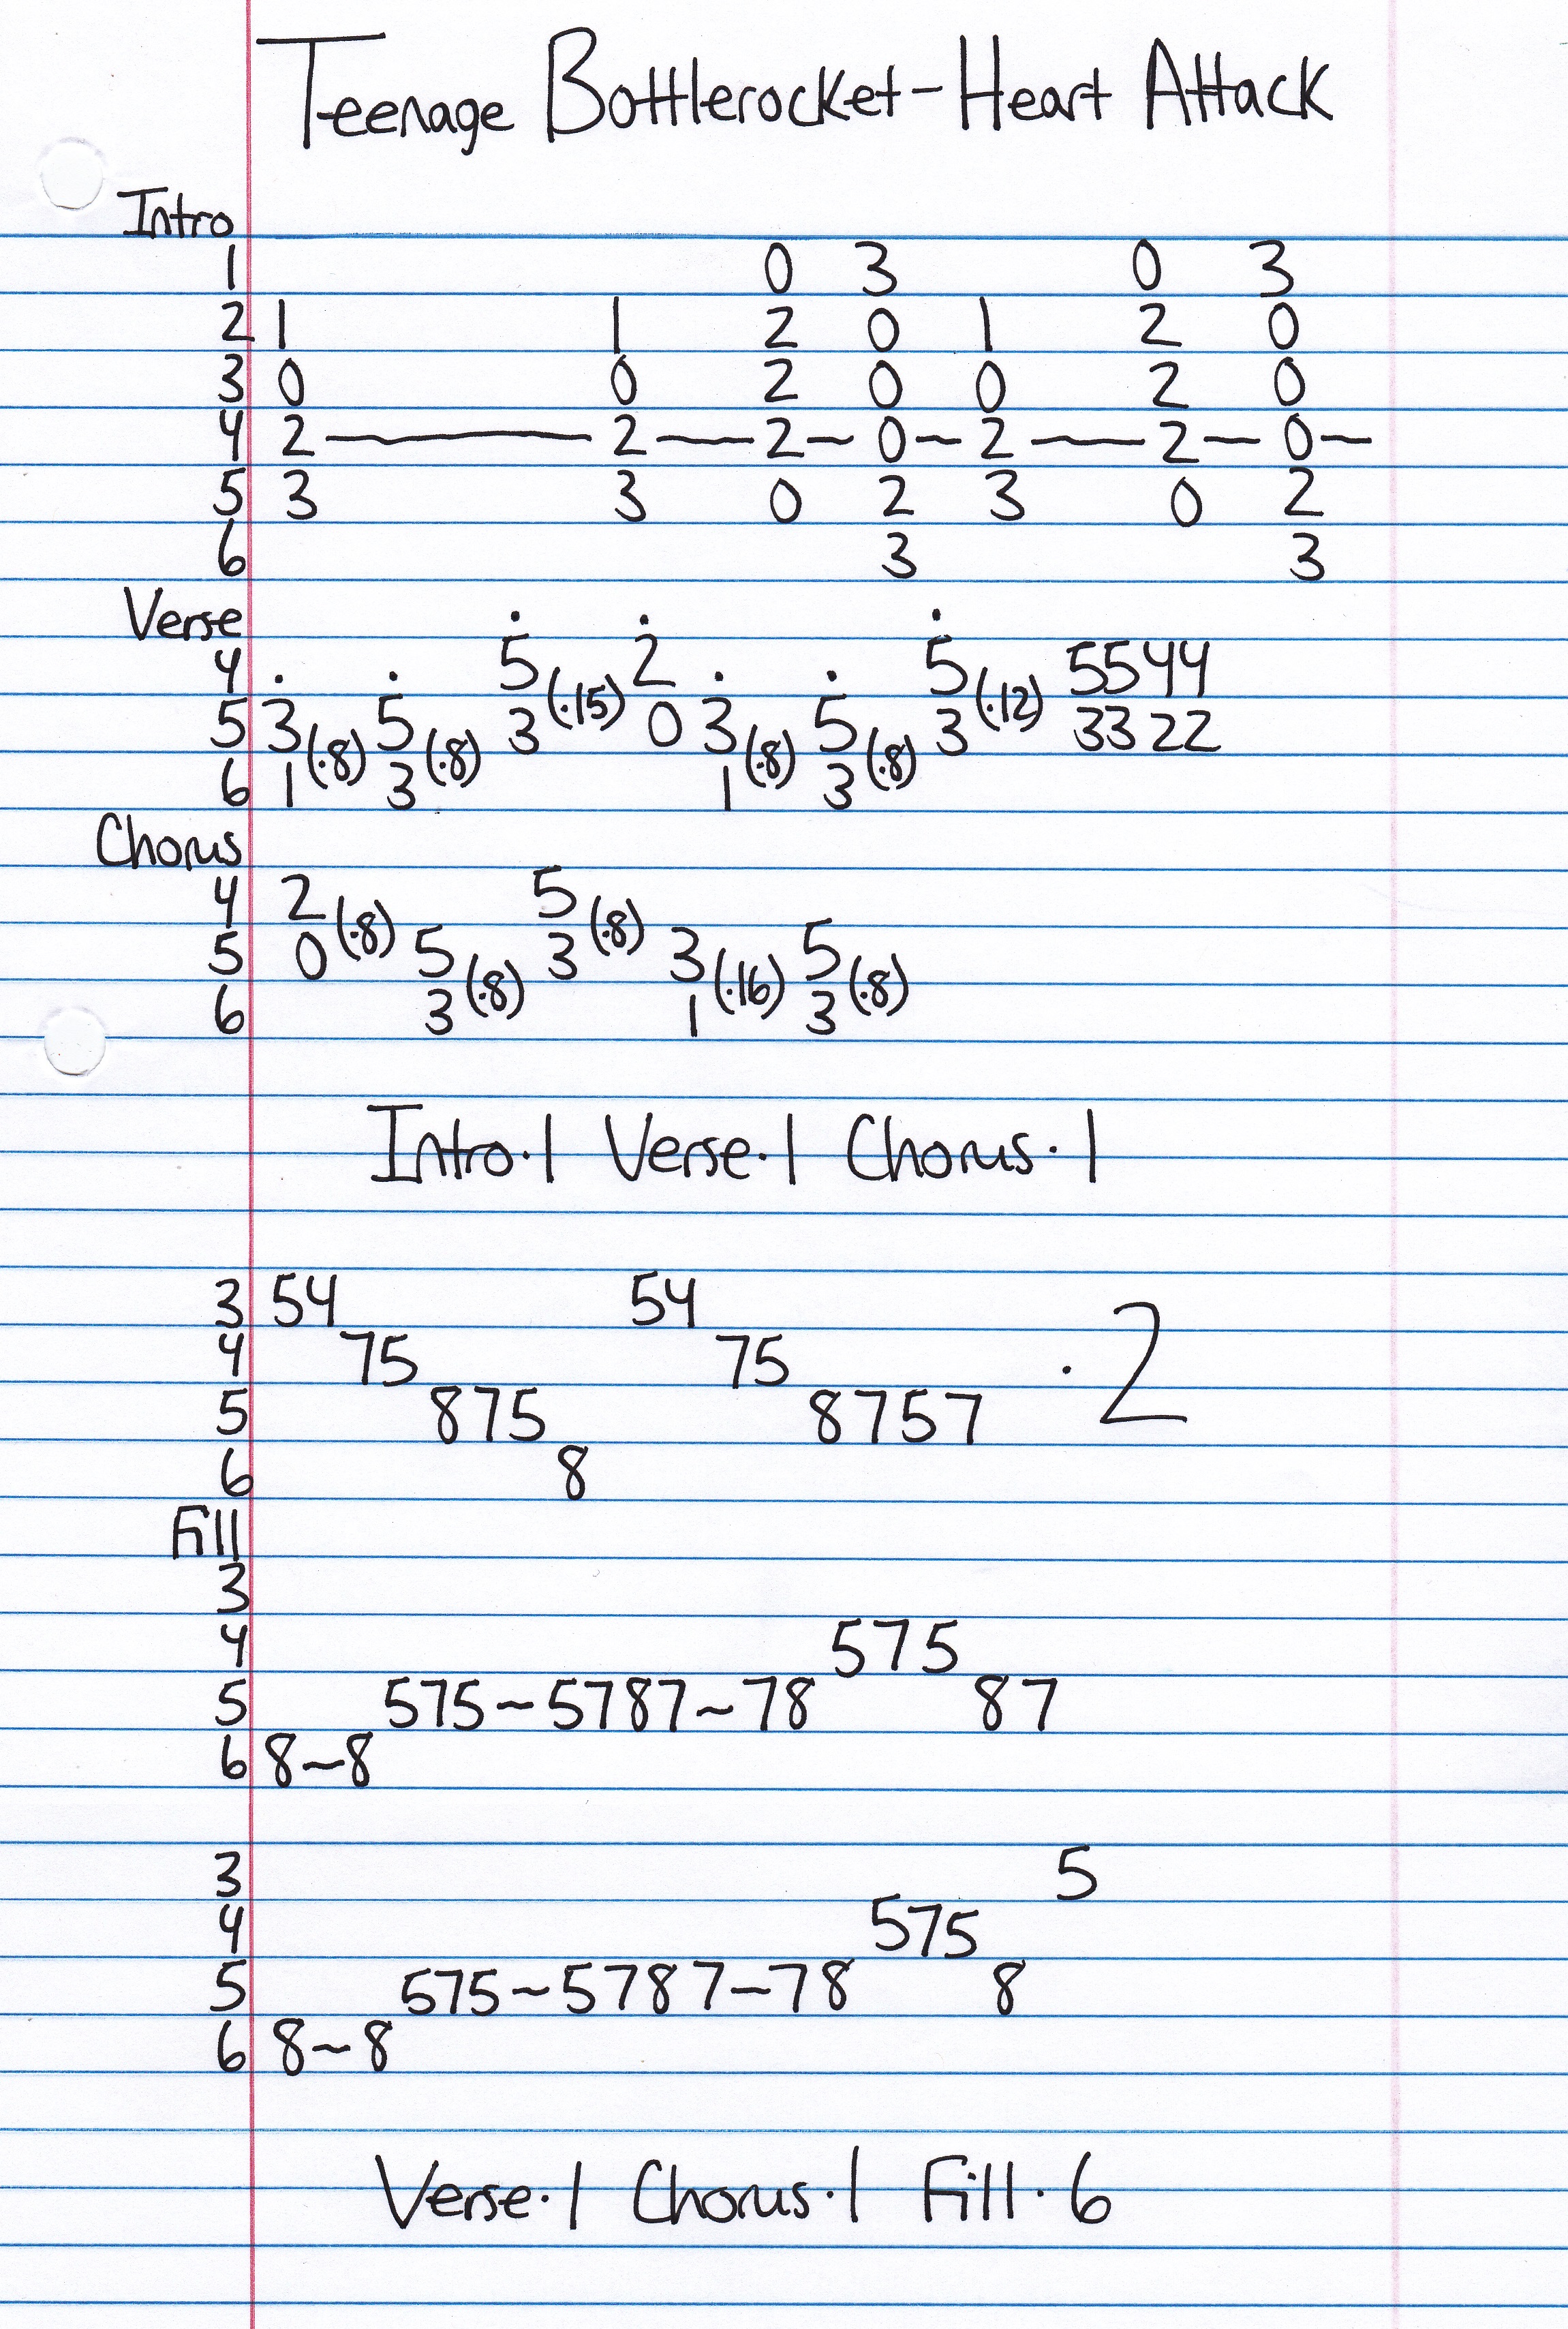 Teenage Bottlerocket - Heart Attack
Intro
1 0 3 0 3
2 1 1 2 0 1 2 0
3 0 0 2 0 0 2 0
4 2 — 2 — 2 ~ 0 ~ 2 — 2 — 0 ~
5 3 3 0 2 3 0 2
6 3 3
Verse
4 5 2 5 5544
5 3 5 3 (·15) 0 3 5 3 (·12) 3322
6 1 (·8) 3 (·8) 1 (·8) 3 (·8)
Chorus
4 2 5
5 0 (·8) 5 3 (·8) 3 5
6 3 (·8) 1 (·16) 3 (·8)
Intro·1 Verse·1 Chorus·1
3 54 54
4 75 75 ·2
5 875 8757
6 8
Fill
3
4 575
5 575~5787~78 87
6 8~8
3 5
4 575
5 575~5787~78 8
6 8~8
Verse·1 Chorus·1 Fill·6